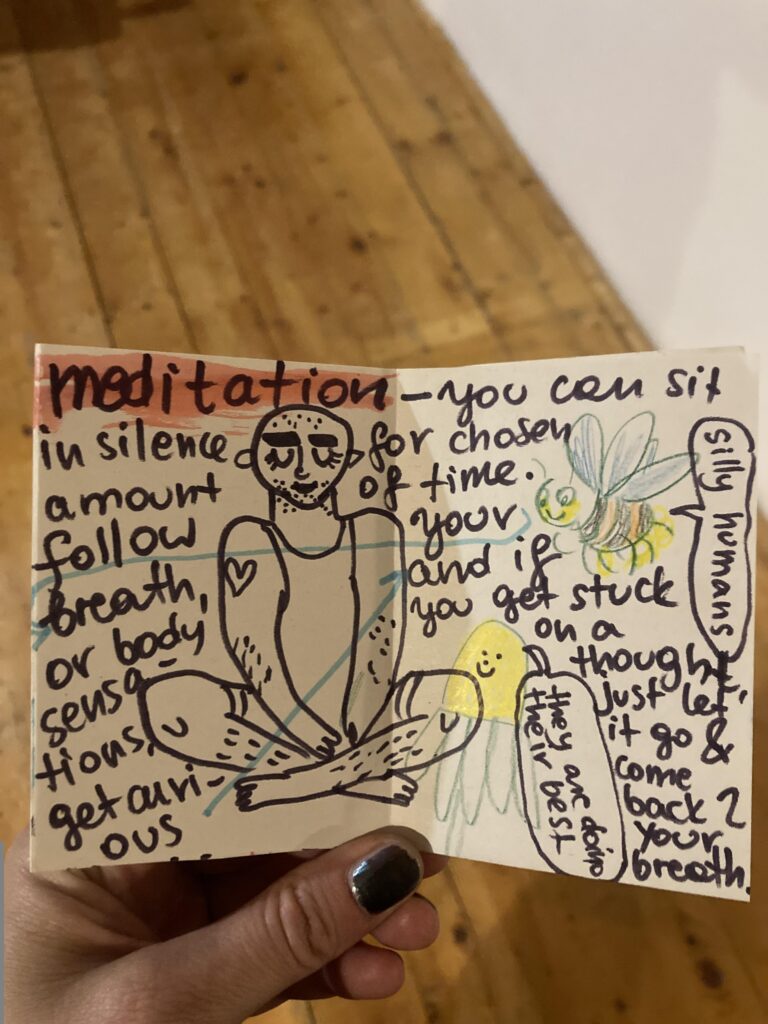 meditation – you can sit
in silence for chosen
amount of time.
follow your
breath,
or body
sensa-
tions,
get curi-
ous
and if
you get stuck
on a
thought
just let
it go &
come
back 2
your
breath.
silly humans
they are doing
their best